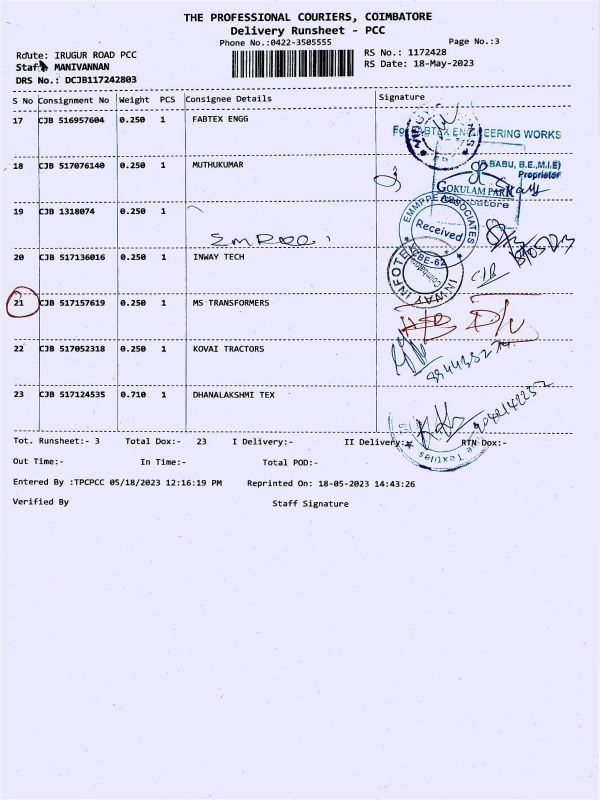 THE PROFESSIONAL COURIERS, COIMBATORE
Delivery Runsheet - PCC
Phone No.:0422-3505555
Page No.:3
Route: IRUGUR ROAD PCC
RS No.: 1172428
Staff MANIVANNAN
RS Date: 18-May-2023
DRS No.: DCJB117242803
S No Consignment No Weight PCS Consignee Details Signature
17 CJB 516957604 0.250 1 FABTEX ENGG
For FABTEX ENGINEERING WORKS
18 CJB 517076140 0.250 1 MUTHUKUMAR
BABU, B.E.,M.I.E)
Proprietor
GOKULAM PARK
Coimbatore
19 CJB 1318074 0.250 1
EMMPPE ASSOCIATES
Received
CBE-62
20 CJB 517136016 0.250 1 INWAY TECH
INWAY INFOTE
Coimbatore
21 CJB 517157619 0.250 1 MS TRANSFORMERS
22 CJB 517052318 0.250 1 KOVAI TRACTORS
23 CJB 517124535 0.710 1 DHANALAKSHMI TEX
9042142252
Textiles
Tot. Runsheet:- 3 Total Dox:- 23 I Delivery:- II Delivery:- RTN Dox:-
Out Time:- In Time:- Total POD:-
Entered By :TPCPCC 05/18/2023 12:16:19 PM Reprinted On: 18-05-2023 14:43:26
Verified By Staff Signature